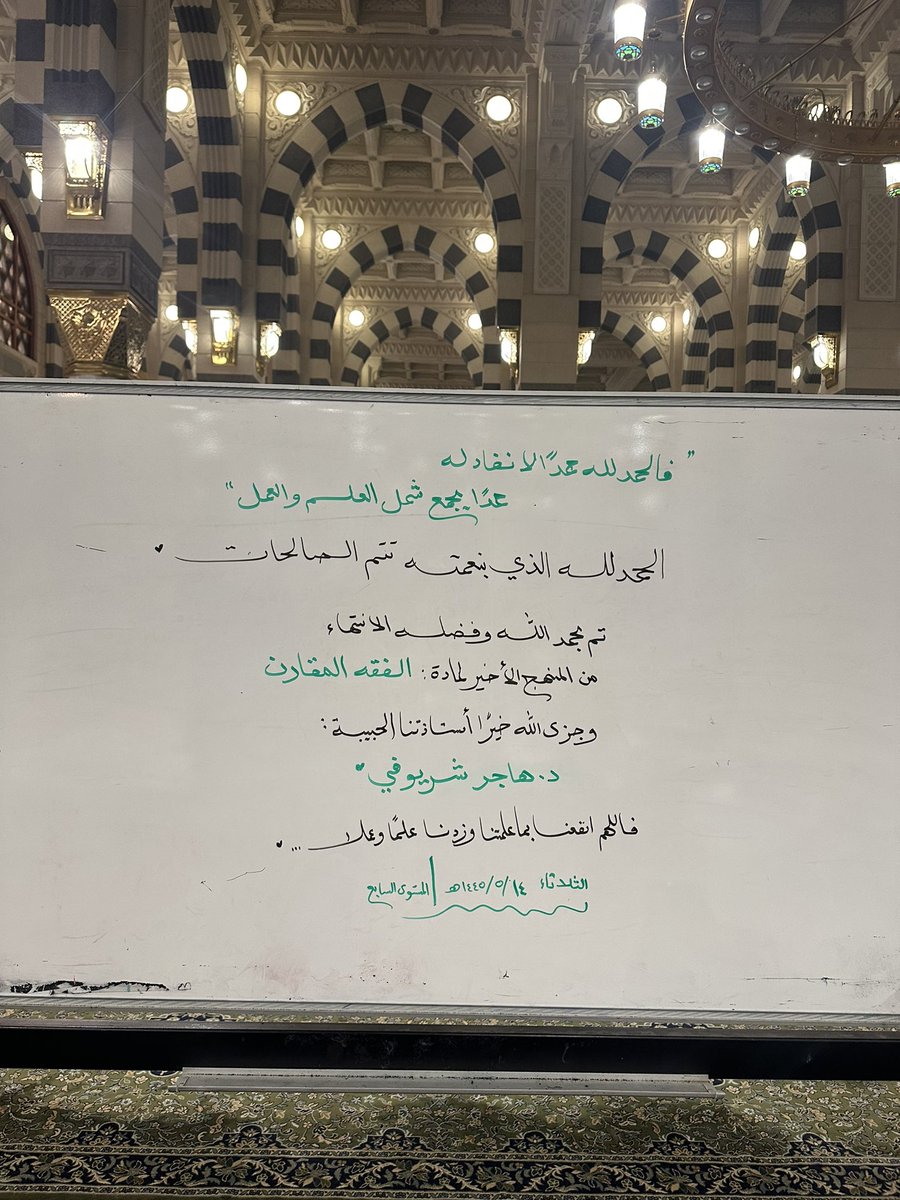 "فالحمد لله حمدًا لا نفاد له
حمدًا يجمع شمل العلم والعمل"
الحمد لله الذي بنعمته تتم الصالحات
تم بحمد الله وفضله الانتهاء
من المنهج الأخير لمادة: الفقه المقارن
وجزى الله خيرًا أستاذتنا الحبيبة:
د. هاجر شريوفي
فاللهم انفعنا بما علمتنا وزدنا علمًا وعملا ...
الثلاثاء ١٤/٥/١٤٤٥هـ | المستوى السابع